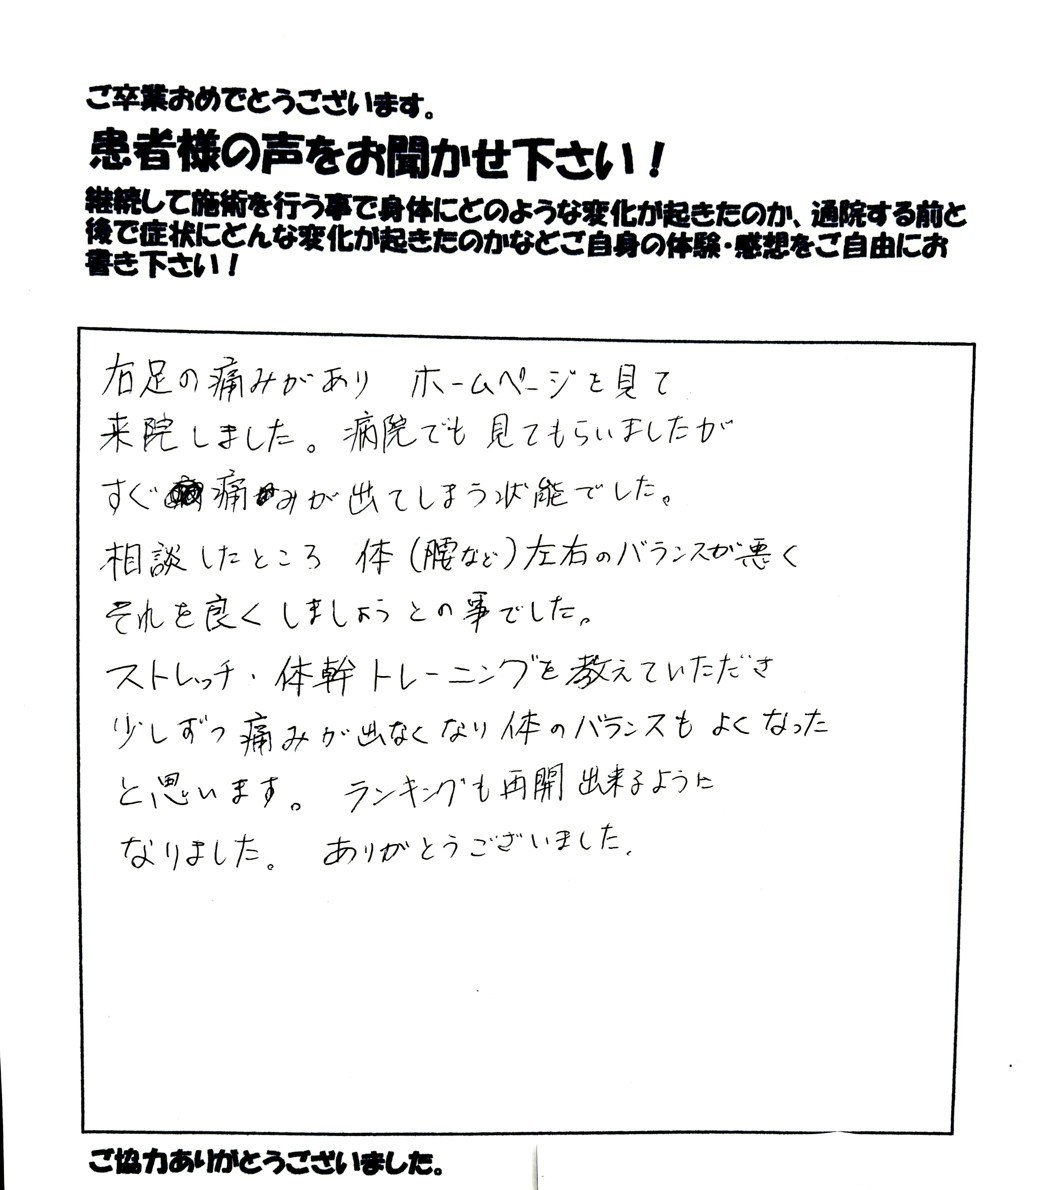 ご卒業おめでとうございます。
患者様の声をお聞かせ下さい！
継続して施術を行う事で身体にどのような変化が起きたのか、通院する前と
後で症状にどんな変化が起きたのかなどご自身の体験・感想をご自由にお
書き下さい！
右足の痛みがあり ホームページを見て
来院しました。病院でも見てもらいましたが
すぐ痛みが出てしまう状態でした。
相談したところ 体（腰など）左右のバランスが悪く
それを良くしましょうとの事でした。
ストレッチ・体幹トレーニングを教えていただき
少しずつ痛みが出なくなり体のバランスもよくなった
と思います。 ランキングも再開出来るように
なりました。 ありがとうございました。
ご協力ありがとうございました。